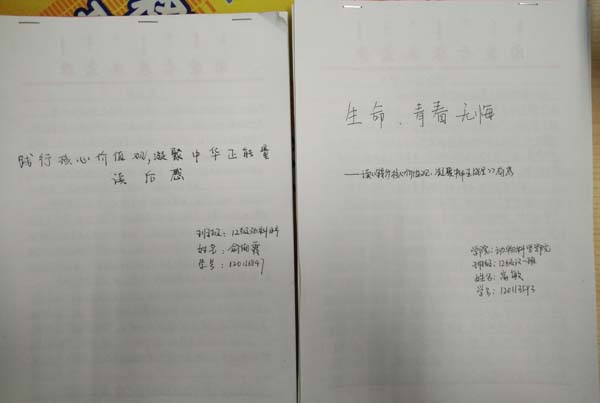 践行核心价值观，凝聚中华正能量
读后感
班级：12级动物科学
姓名：
学号：
生命、青春无悔
——读《践行核心价值观，凝聚中华正能量》有感
学院：动物科学学院
班级：12级汉一班
姓名：高敏
学号：120113593